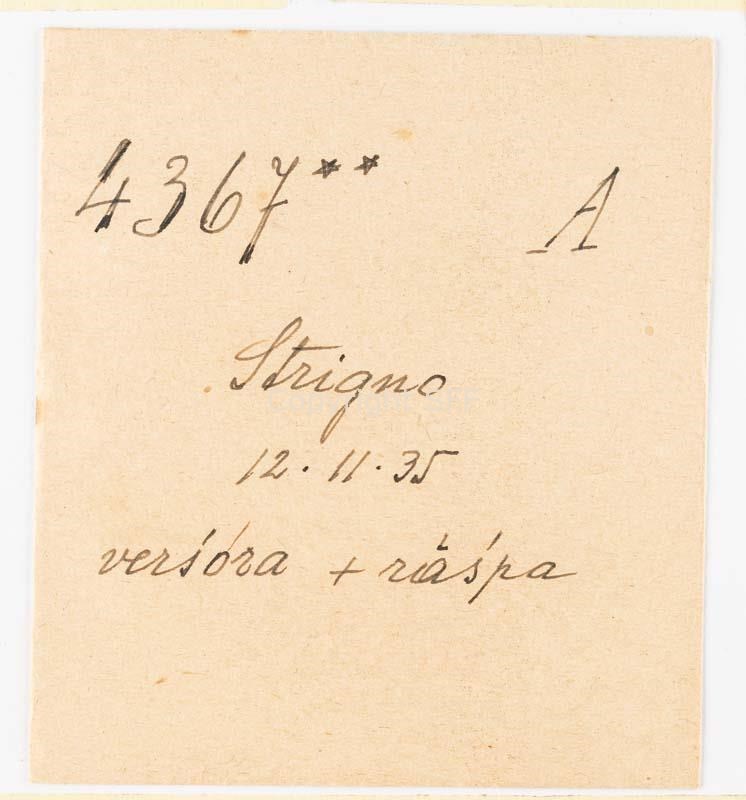 4367** A
Strigno
12.11.35
verśóra + ràśpa